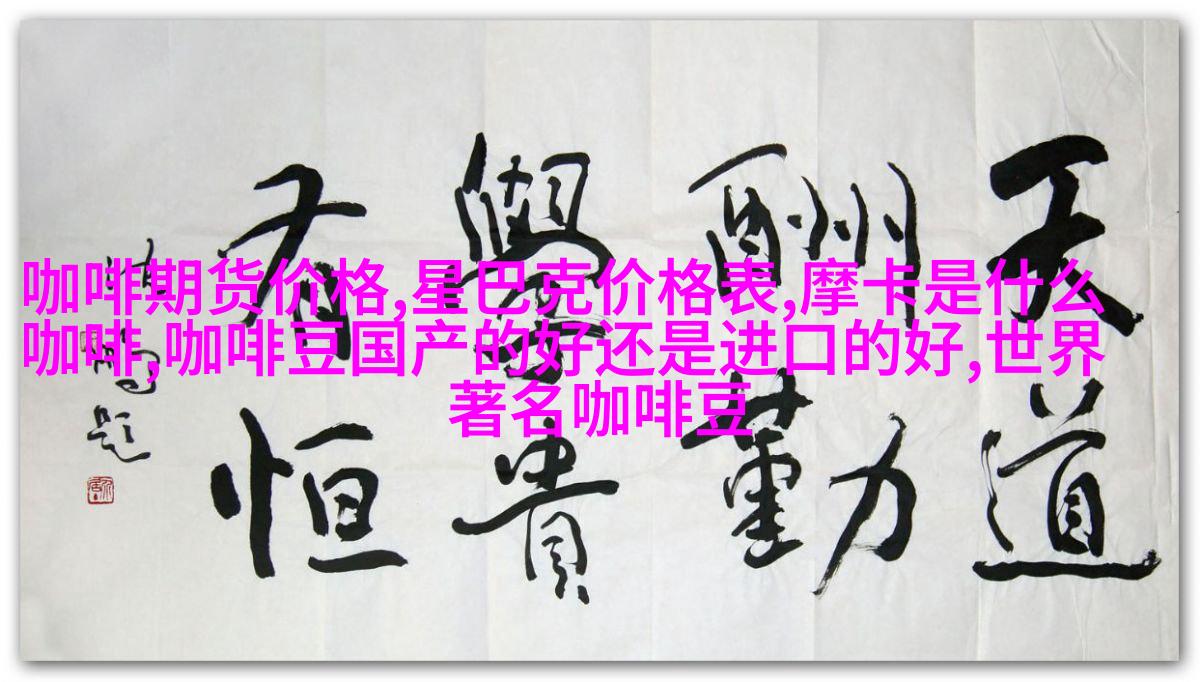 咖啡期货价格,星巴克价格表,摩卡是什么
咖啡,咖啡豆国产的好还是进口的好,世界
著名咖啡豆
天道
酬勤
學貴
有恒
题